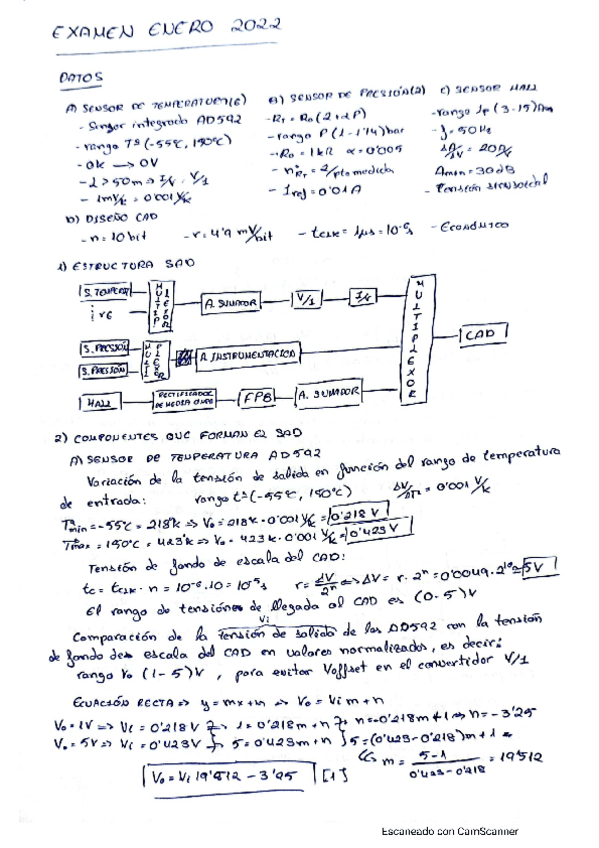 EXAMEN ENERO 2022
DATOS
A) SENSOR DE TEMPERATURA(6)
- Sensor integrado AD592
- rango Tª (-55ºC, 150ºC)
- 0K → 0V
- L > 50m ⇒ I/V . V/I
- 1mV/K = 0'001V/K
B) SENSOR DE PRESIÓN(2)
- rango P (1-1'14) bar
- R0 = 1KΩ α = 0'005
- nºRT = 2/pto medida
- Iref = 0'01A
C) SENSOR HALL
- rango Ip (3-15)A
- f = 50Hz
Amin = 30dB
- Tensión sinusoidal
D) DISEÑO CAD
- n = 10 bit
- r = 4'9 mV/bit
- tCLK = 1µs = 10^-6 s
- ECONÓMICO
1) ESTRUCTURA SAD
S. TEMPERAT
MULTIPLEXOR
A. SUMADOR
V/I
I/V
MULTIPLEXOR
CAD
S. PRESIÓN
S. PRESIÓN
MULTIPLEXOR
A. INSTRUMENTACION
HALL
RECTIFICADOR DE MEDIA ONDA
FPB
A. SUMADOR
2) COMPONENTES QUE FORMAN EL SAD
A) SENSOR DE TEMPERATURA AD592
Variación de la tensión de salida en función del rango de temperatura
de entrada: rango tª (-55ºC, 150ºC) ΔV/ΔTª = 0'001 V/K
Tªmin = -55ºC = 218ºK ⇒ V0 = 218K · 0'001 V/K = 0'218 V
Tªmax = 150ºC = 423ºK ⇒ V0 = 423K · 0'001 V/K = 0'423 V
Tensión de fondo de escala del CAD:
tc = tCLK · n = 10^-6 · 10 = 10^-5 s r = ΔV/2^n ⇒ ΔV = r · 2^n = 0'0049 · 2^10 ≅ 5V
El rango de tensiones de llegada al CAD es (0-5)V
Comparación de la tensión de salida de los AD592 con la tensión
Vi
de fondo de escala del CAD en valores normalizados, es decir:
rango V0 (1-5)V, para evitar Voffset en el convertidor V/I
ECUACIÓN RECTA ⇒ y = mx + n ⇒ V0 = Vi m + n
V0 = 1V ⇒ Vi = 0'218 V } 1 = 0'218m + n } n = -0'218m + 1 ⇒ n = -3'25
V0 = 5V ⇒ Vi = 0'423V } 5 = 0'423m + n } 5 = (0'423 - 0'218)m + 1 ⇒
m = 5-1/0'423-0'218 = 19'512
V0 = Vi 19'512 - 3'25 [1]
Escaneado con CamScanner